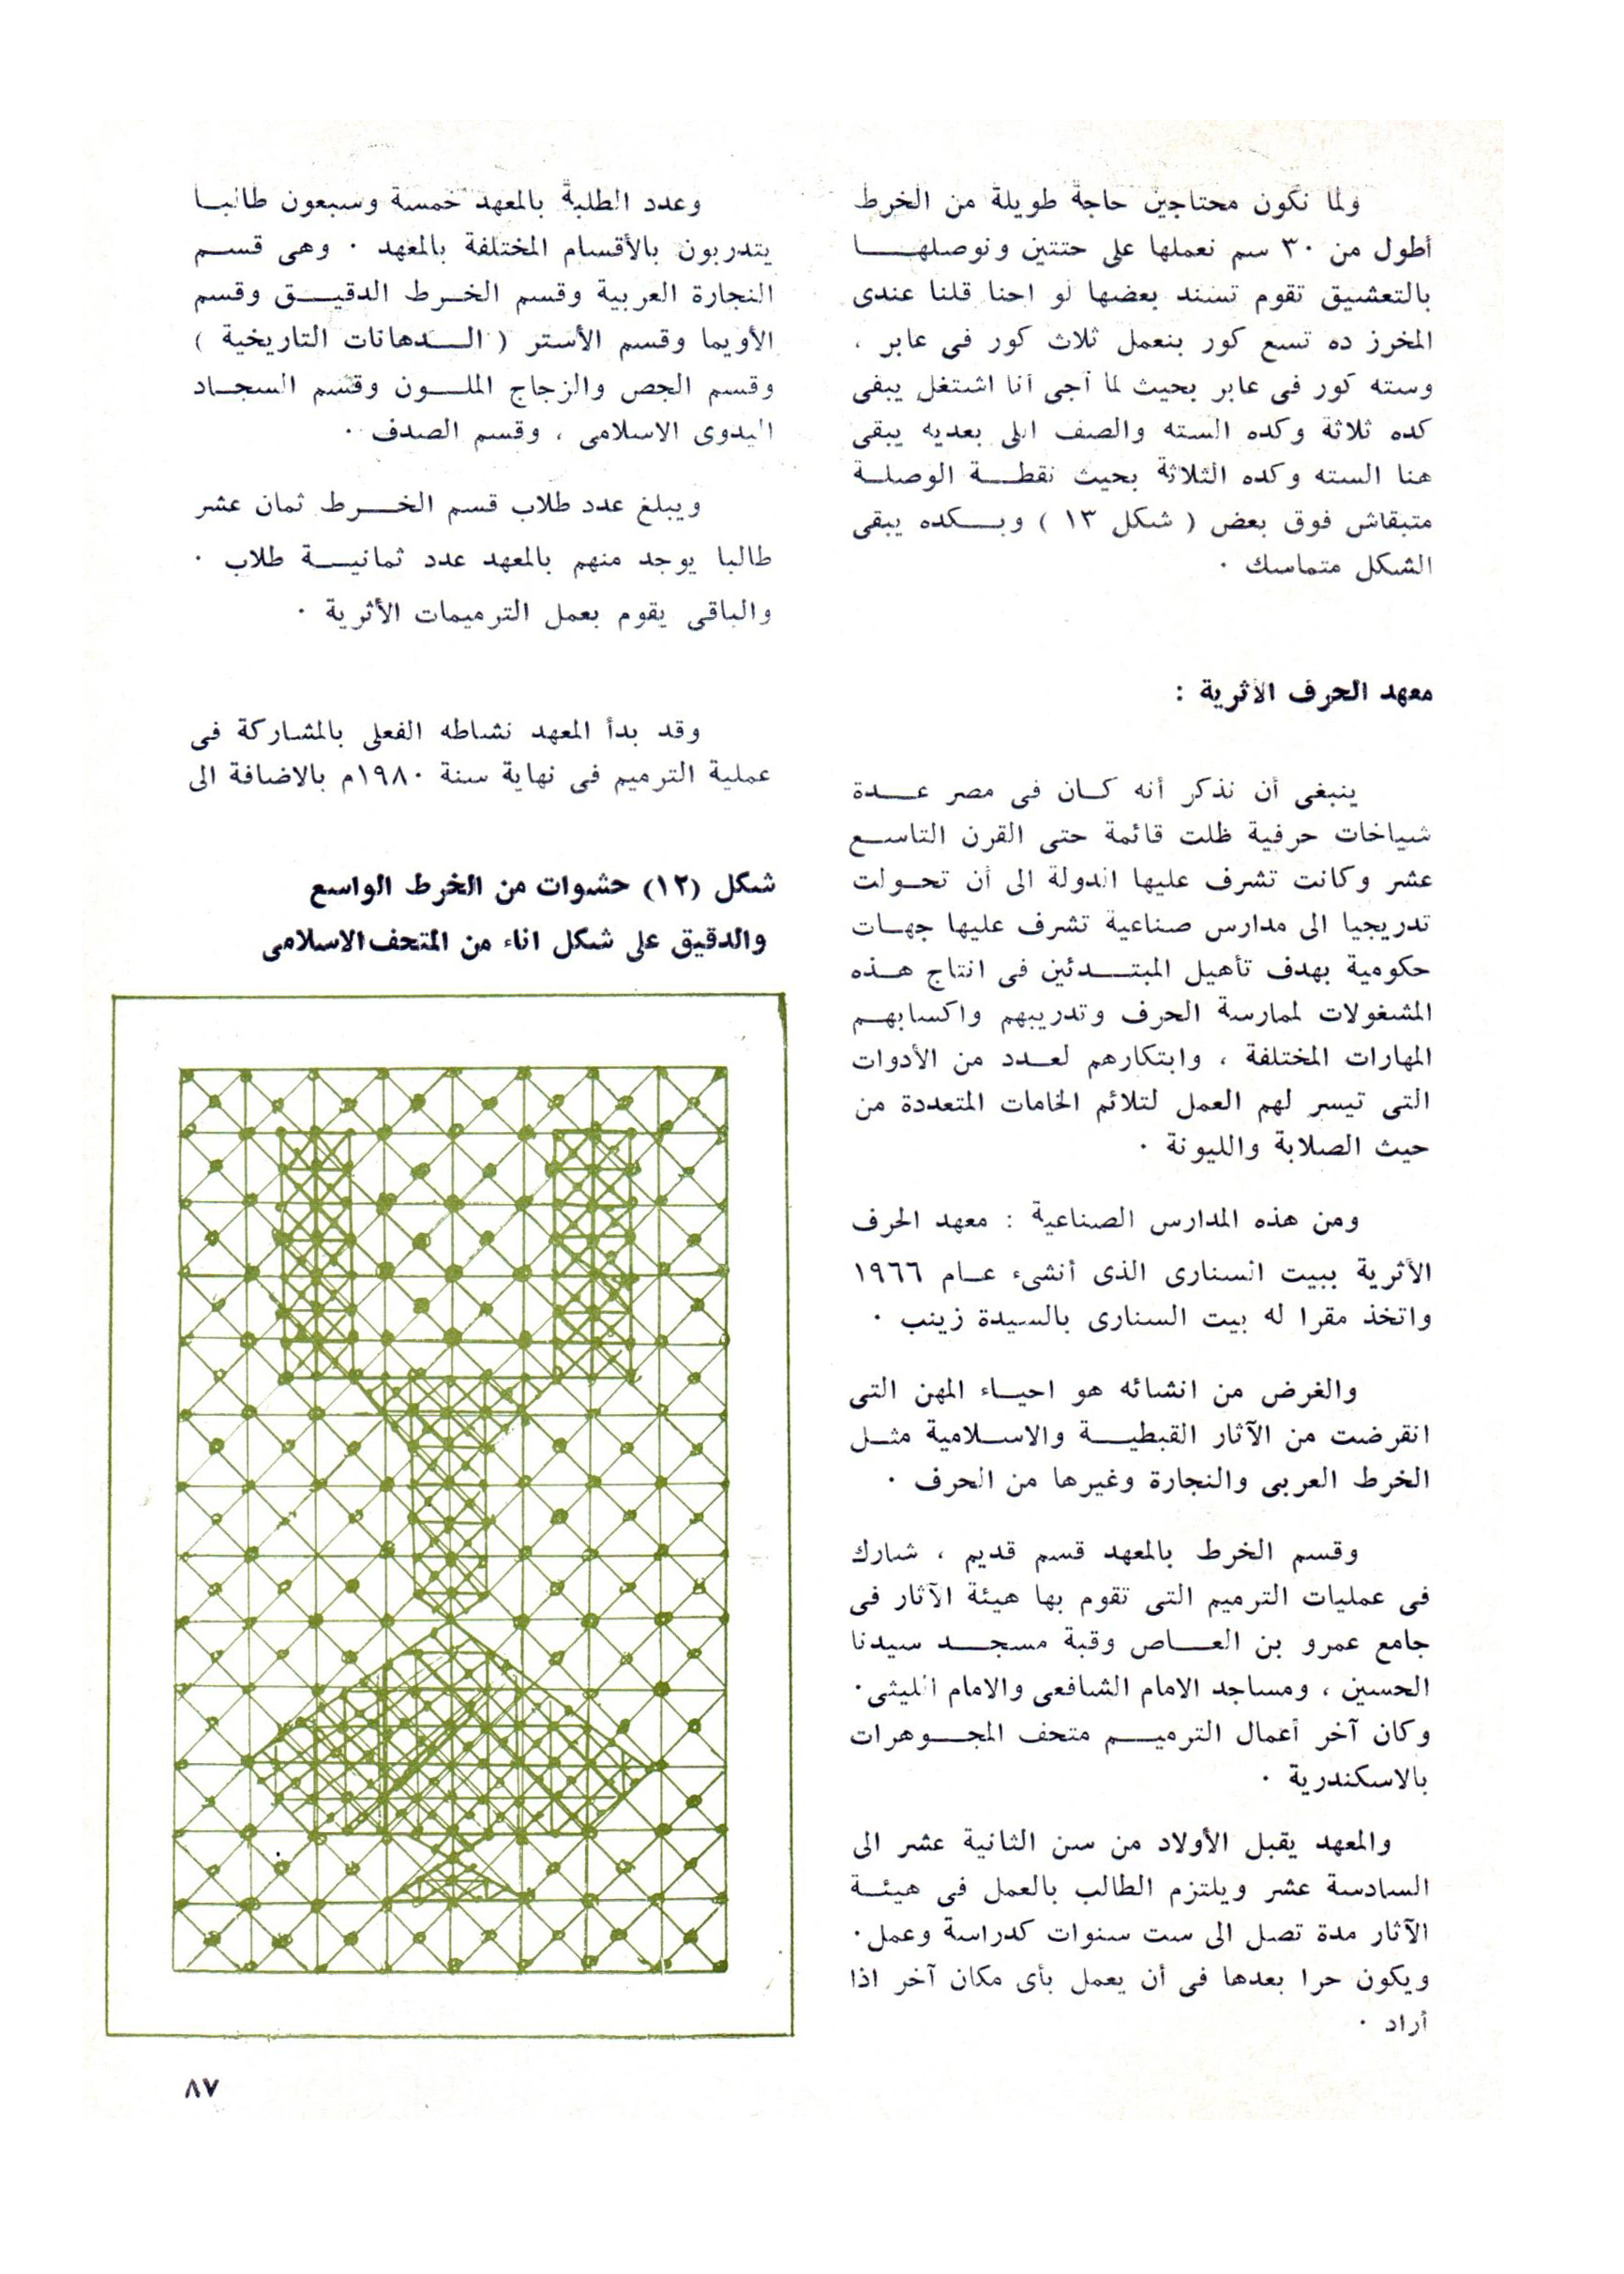 ولما نكون محتاجين حاجة طويلة من الخرط
أطول من ٣٠ سم نعملها على حتتين ونوصلهـــا
بالتعشيق تقوم تسند بعضها لو احنا قلنا عندى
المخرز ده تسع كور بنعمل ثلاث كور فى عابر ،
وسته كور فى عابر بحيث لما آجى أنا اشتغل يبقى
كده ثلاثة وكده السته والصف اللى بعديه يبقى
هنا السته وكده الثلاثة بحيث نقطــة الوصلـة
متبقاش فوق بعض ( شكل ١٣ ) وبــكده يبقى
الشكل متماسك ٠
معهد الحرف الأثرية :
ينبغى أن نذكر أنه كـان فى مصر عــدة
شياخات حرفية ظلت قائمة حتى القرن التاسـع
عشر وكانت تشرف عليها الدولة الى أن تحـولت
تدريجيا الى مدارس صناعية تشرف عليها جهـات
حكومية بهدف تأهيل المبتــدئين فى انتاج هـذه
المشغولات لممارسة الحرف وتدريبهم واكسابهـم
المهارات المختلفة ، وابتكارهم لعــدد من الأدوات
التى تيسر لهم العمل لتلائم الخامات المتعددة من
حيث الصلابة والليونة ٠
ومن هذه المدارس الصناعية : معهد الحرف
الأثرية ببيت السنارى الذى أنشىء عـام ١٩٦٦
واتخذ مقرا له بيت السنارى بالسيدة زينب ٠
والغرض من انشائه هو احيـاء المهن التى
انقرضت من الآثار القبطيــة والاسـلامية مثـل
الخرط العربى والنجارة وغيرها من الحرف ٠
وقسم الخرط بالمعهد قسم قديم ، شارك
فى عمليات الترميم التى تقوم بها هيئة الآثار فى
جامع عمرو بن العـــاص وقبة مسجــد سيدنا
الحسين ، ومساجد الامام الشافعى والامام الليثى٠
وكان آخر أعمال الترميــم متحف المجــوهرات
بالاسكندرية ٠
والمعهد يقبل الأولاد من سن الثانية عشر الى
السادسة عشر ويلتزم الطالب بالعمل فى هيئـة
الآثار مدة تصل الى ست سنوات كدراسة وعمل٠
ويكون حرا بعدها فى أن يعمل بأى مكان آخر اذا
أراد ٠
وعدد الطلبة بالمعهد خمسة وسبعون طالبـا
يتدربون بالأقسام المختلفة بالمعهد ٠ وهى قسـم
النجارة العربية وقسم الخـرط الدقيـق وقسم
الأويما وقسم الأستر ( الــدهانات التاريخية )
وقسم الجص والزجاج الملــون وقسم السجـاد
اليدوى الاسلامى ، وقسم الصدف ٠
ويبلغ عدد طلاب قسم الخـــرط ثمان عشر
طالبا يوجد منهم بالمعهد عدد ثمانيــة طلاب ٠
والباقى يقوم بعمل الترميمات الأثرية ٠
وقد بدأ المعهد نشاطه الفعلى بالمشاركة فى
عملية الترميم فى نهاية سنة ١٩٨٠م بالاضافة الى
شكل (١٢) حشوات من الخرط الواسع
والدقيق على شكل اناء من المتحف الاسلامى
٨٧